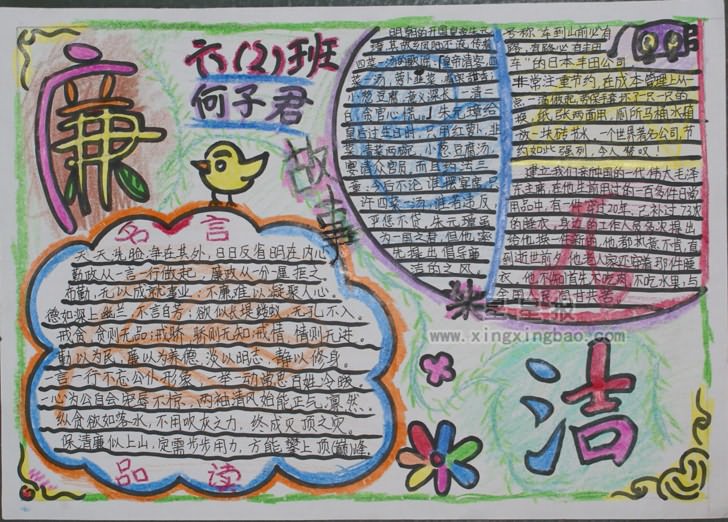 廉
六(2)班
何子君
故事
名言
天天洗脸,净在其外,日日反省明在内心
勤政从一言一行做起,廉政从一分一厘拒之
不勤,无以成就事业;不廉,难以凝聚人心。
德如深上幽兰 不言自芳;欲似长堤蝼蚁 无孔不入。
戒贪,贪则无品;戒骄,骄则无知;戒情 情则无进。
勤以为民,廉以为养德,淡以明志,静以修身。
一言一行不忘公仆形象,一举一动常思百姓冷暖
一心为公自会宠辱不惊,两袖清风始能正气凛然。
纵贪欲如落水,不用吹灰之力,终成灭顶之灾。
保清廉似上山,定需步步用力,方能攀上顶(巅)峰.
品读
明朝的开国皇帝朱元
四菜一汤的歌谣:皇帝请客,四
菜一汤,萝卜韭菜,
小葱豆腐,
朱元璋给
皇后过生日时,只用红萝卜、韭
菜,青菜两碗,小葱豆腐汤,
宴请众官员,而且约法三
章:今后不论谁摆宴席,只
许四菜一汤,谁若违反,
严惩不贷。朱元璋虽
为一国之君,但他率
先提出倡导廉
洁的之风。
号称"车到山前必有
路,有路必有丰田
车"的日本丰田公司,
非常注重节约,在成本管理上从一
换,纸张两面用,厕所马桶水箱
放一块砖节水。一个世界著名公司,节
约如此强烈,令人赞叹!
建立我们亲爱祖国的一代伟大毛泽
东主席,在他生前用过的一百多件日常
用品中,有一件穿过20年,已补过73次
的睡衣,身边的工作人员多次提出
给他换件新的,他都执意不肯,直
到逝世前夕,他老人家还穿着那件睡
衣。
洁
www.xingxingbao.com